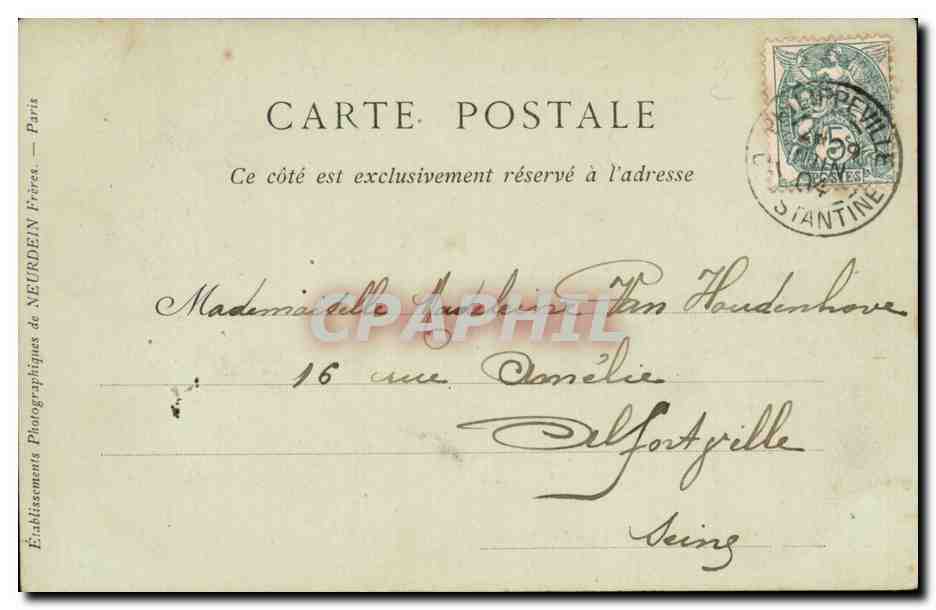 CARTE POSTALE
Ce côté est exclusivement réservé à l'adresse
PHILIPPEVILLE
5
POSTES
04
STANTINE
Mademoiselle Madeleine Van Houdenhove
16 rue Amélie
Alfortville
Seine
CPAPHIL
Établissements Photographiques de NEURDEIN Frères. — Paris